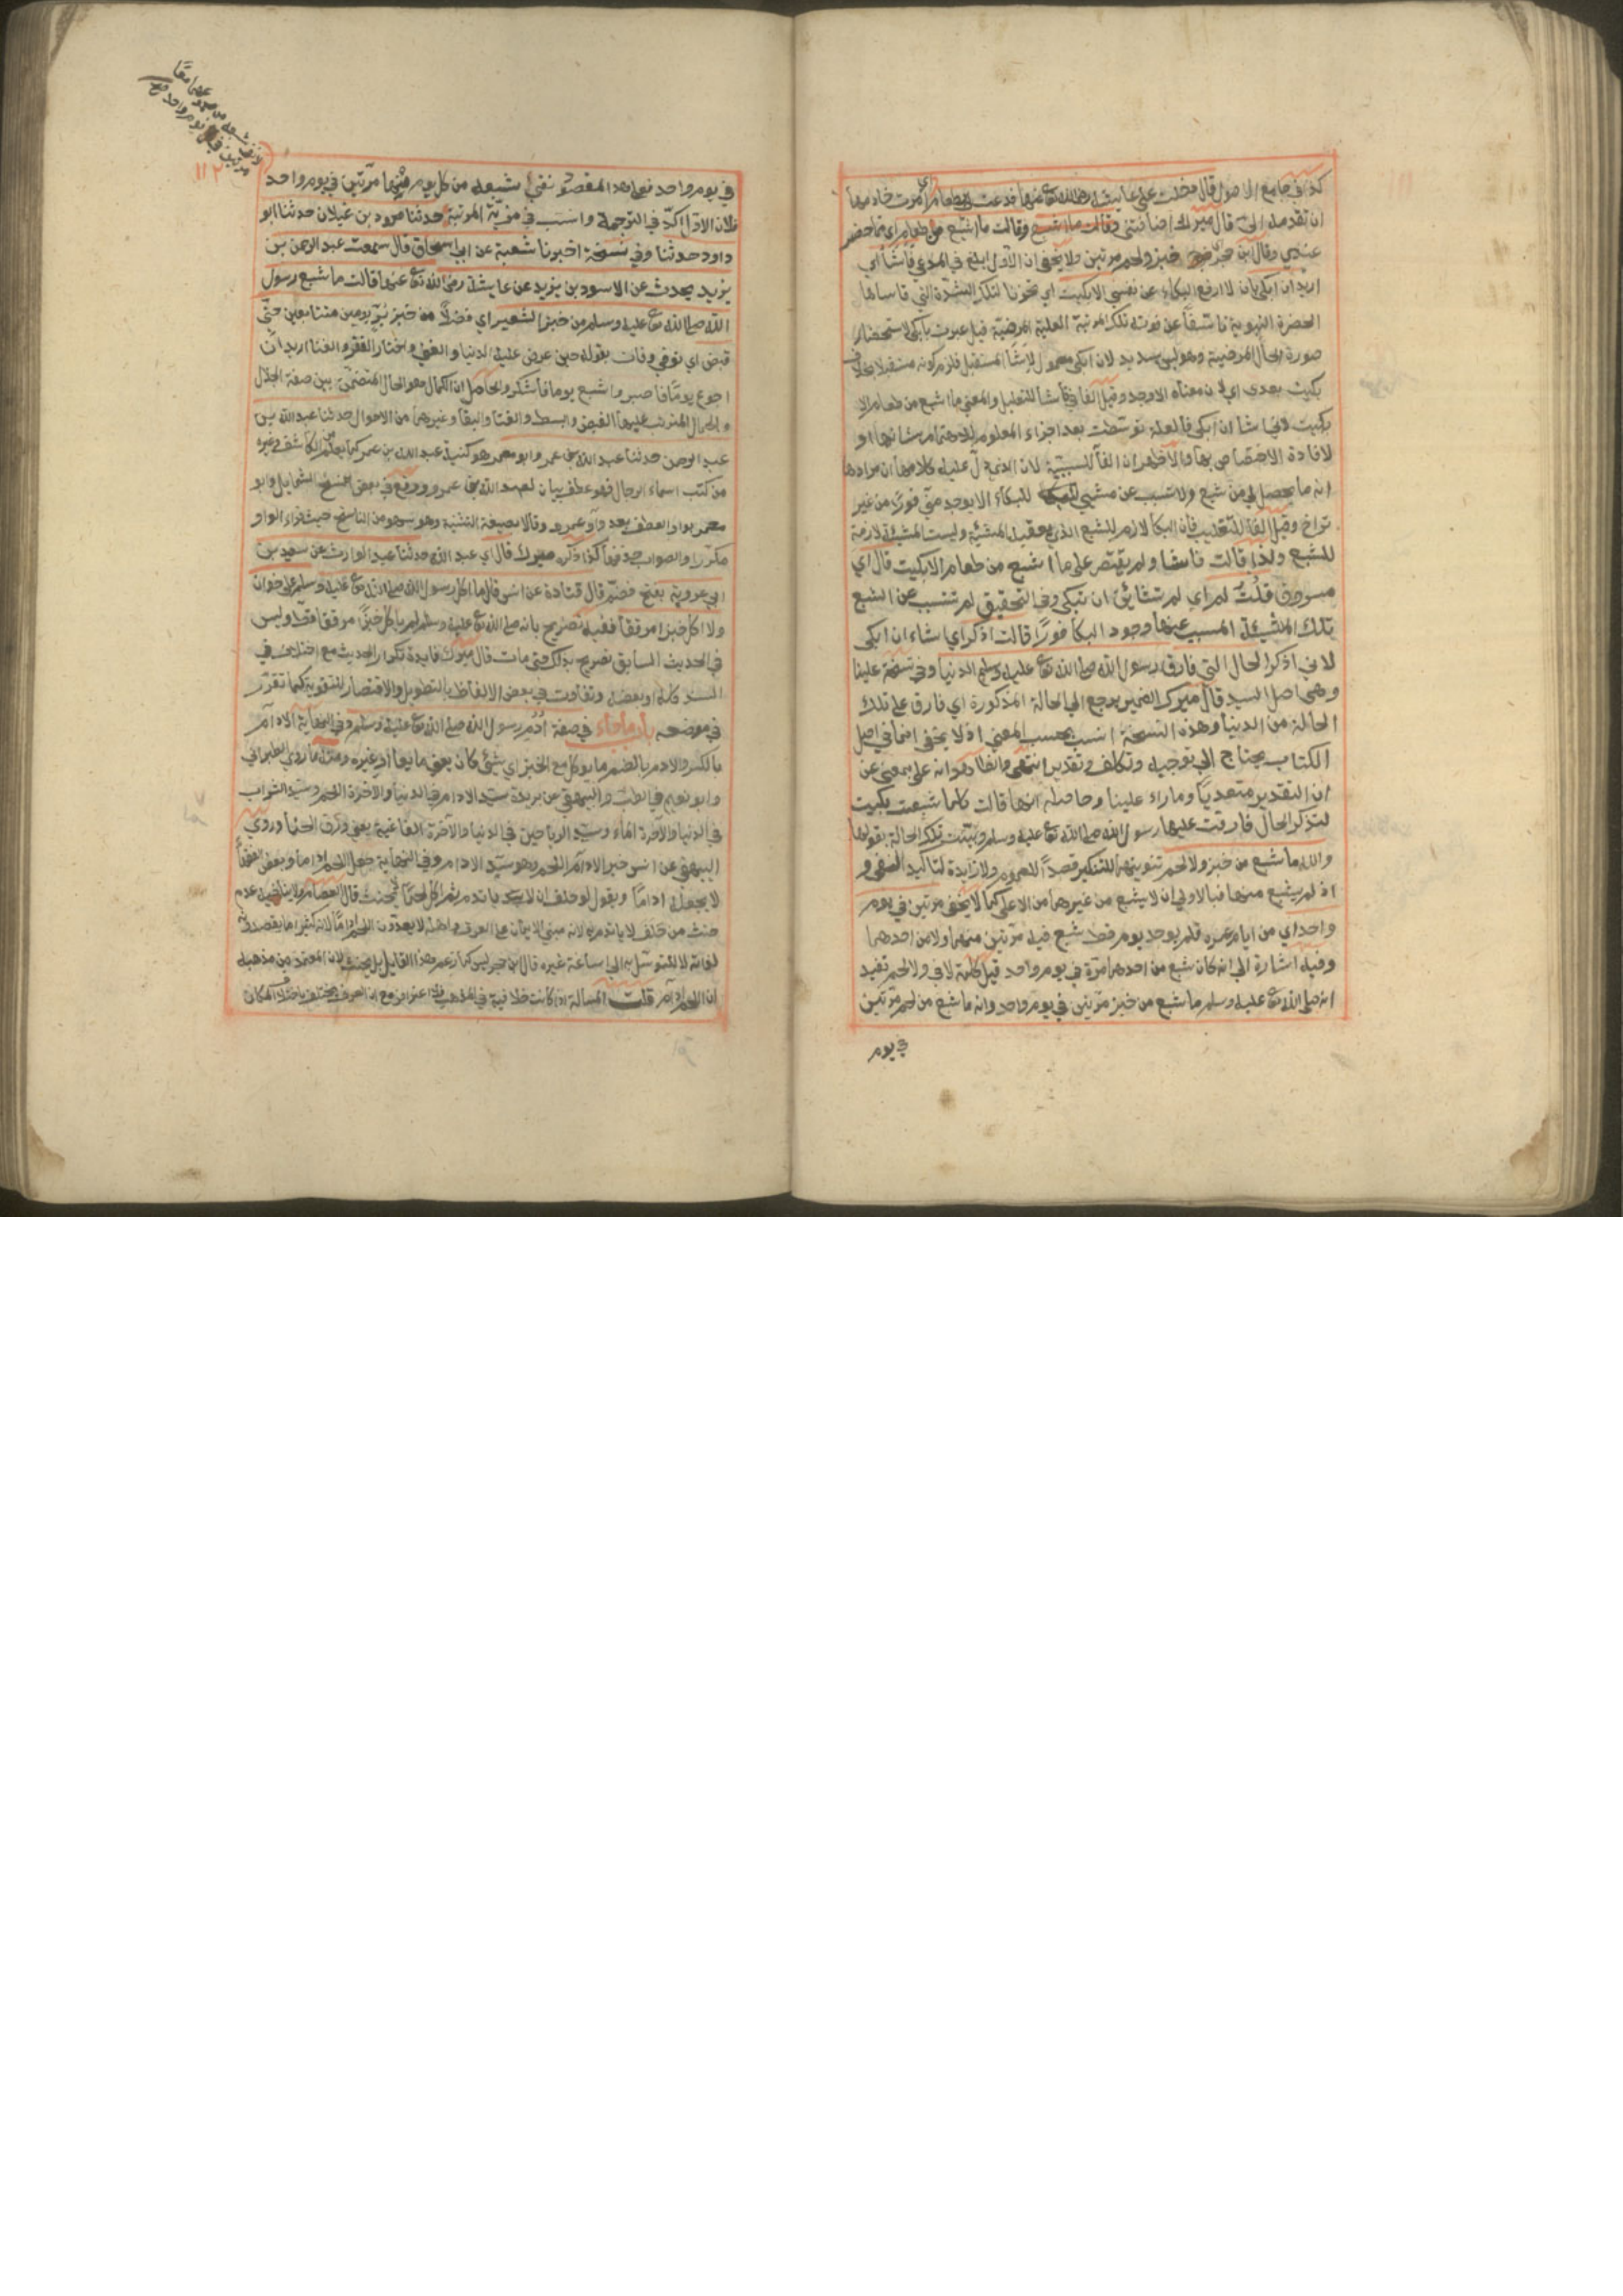 كذا في جامع الاصول قال دخلت على عايشة رضي الله تع عنها فدعت لي بطعام اي امرت خادمها
ان تقدمه الي قال ميرك اضافتني وقالت ما اشبع وقالت ما اشبع من طعام اي مما حضر
عندي وقال ابن حجر خبز ولحم مرتين ولا يخفى ان الاول ابلغ في المدعي فاشا اي
اريد ان ابكي بان لا ارفع البكاء عن نفسي الا بكيت اي تحزنا لتلك الشدة التي قاساها
الحضرة النبوية تاسفا عن فوت تلك المرتبة العلية المرضية قيل عبرت بابكي لاستحضار
صورة الحال المرضية وهو ليس بسديد لان ابكي معمول لاشا المستقبل فلزم كونه مستقبلا بخلاف
بكيت بعدي اي لان معناه الاوجد وقيل الفا في فاشا للتعليل والمعنى ما اشبع من طعام الا
بكيت لاني اشا ان ابكي فالعلة توسطت بعد اجزاء المعلوم للاهتمام بشانها او
لافادة الاختصاص بها والاظهر ان الفا للسببية لان الذي دل عليه كلامها ان مرادها
انه ما يحصل لي من شبع ولا تسبب عن مشيتي للبكاء الا يوجد مني فورا من غير
تراخ وقيل الفا للتعقيب فان البكا لازم للشبع الذي يعقبه المشيئة وليست المشيئة لازمة
للشبع ولذا قالت فاشا ولم يقتصر على ما اشبع من طعام الا بكيت قال اي
مسروق قلت لم اي لم تشائي ان تبكي وفي التحقيق لم تتسبب عن الشبع
تلك المشيئة المسبب عنها وجود البكا فورا قالت اذكر اي اشاء ان ابكي
لاني اذكر الحال التي فارق رسول الله صلى الله تع عليه وسلم الدنيا وفي نسخة علينا
وهي اصل السيد قال ميرك الضمير يرجع الي الحالة المذكورة اي فارق على تلك
الحالة من الدنيا وهذه النسخة انسب بحسب المعنى اذ لا يخفى ان ما في اصل
الكتاب يحتاج الي توجيه وتكلف وتقدير انتهى والظاهر انه على بمعنى عن
ان التقدير متعديا وماراء علينا وحاصله انها قالت كلما شبعت بكيت
لتذكر الحال فارقت عليها رسول الله صلى الله تع عليه وسلم وبينت تلك الحالة بقولها
والله ما شبع من خبز ولا لحم تنوينهما للتنكير قصدا للعموم ولا زايدة لتاكيد النفي و
اذ لم يشبع منهما فبالاولي ان لا يشبع من غيرهما من الاعلى كما لا يخفى مرتين في يوم
واحد اي من ايام عمره فلم يوجد يوم قط شبع فيه مرتين منهما ولا من احدهما
وفيه اشارة الي انه كان شبع من احدهما مرة في يوم واحد قيل كلمة لا في ولا لحم تفيد
انه صلى الله تع عليه وسلم ما شبع من خبز مرتين في يوم واحد وانه ما شبع من لحم مرتين
في يوم
١١٢
في يوم واحد فعلى هذا المقصود نفي شبعه من كل يوم منهما مرتين في يوم واحد
فلان الاول اكد في الترجمة وانسب في مزية المرتبة حدثنا محمود بن غيلان حدثنا ابو
داود حدثنا وفي نسخة اخبرنا شعبة عن ابي اسحاق قال سمعت عبد الرحمن بن
يزيد يحدث عن الاسود بن يزيد عن عايشة رضي الله تع عنها قالت ما شبع رسول
الله صلى الله تع عليه وسلم من خبز الشعير اي فضلا من خبز بر يومين متتابعين حتى
قبض اي توفي وفات بقوله حين عرض عليه الدنيا والغنى واختار الفقر والفنا اريد ان
اجوع يوما فاصبر واشبع يوما فاشكر والحاصل ان الكمال هو الحال المتضمن بين صفة الجلال
والجمال المترتب عليهما القبض والبسط والفنا والبقا وغيرهما من الاحوال حدثنا عبد الله بن
عبد الرحمن حدثنا عبد الله بن عمرو ابو معمر هو كنية عبد الله بن عمر كما يعلم من الكاشف وغيره
من كتب اسماء الرجال فهو عطف بيان لعبد الله بن عمرو ووقع في بعض النسخ الشمايل وابو
معمر بواو العطف بعد واو عمرو وقالا بصيغة التثنية وهو سهو من الناسخ حيث قراء الواو
مكررا والصواب حذفها كذا ذكره ميرك قال اي عبد الله حدثنا عبد الوارث عن سعيد بن
ابي عروبة بفتح فضم قال قتادة عن انس قال ما اكل رسول الله صلى الله تع عليه وسلم على خوان
ولا اكل خبزا مرققا ففيه تصريح بانه صلى الله تع عليه وسلم لم ياكل خبزا مرققا قط وليس
في الحديث السابق تصريح بذلك حتى مات قال ميرك فايدة تكرار الحديث مع اختلاف في
السند كله او بعضه وتفاوت في بعض الالفاظ بالتطويل والاقتصار للتقوية كما تقرر
في موضعه باب ما جاء في صفة ادم رسول الله صلى الله تع عليه وسلم وفي النهاية الادام
بالكسر والادم بالضم ما يوكل مع الخبز اي شيئ كان يعني مايعا او غيره ومنه ما روي الطبراني
وابو نعيم في الطب والبيهقي عن بريدة سيد الادام في الدنيا والاخرة اللحم وسيد الشراب
في الدنيا والاخرة الماء وسيد الرياحين في الدنيا والاخرة الفاغية يعني ورق الحنا وروي
البيهقي عن انس خير الادام اللحم وهو سيد الادام وفي النهاية جعل اللحم اداما وبعض الفقها
لا يجعله اداما ويقول لو حلف ان لا ياتدم ثم اكل لحما لم يحنث قال العصام
حنث من حلف لا ياتدم به لانه مبني الايمان على العرف واهله لا يعدون اللحم اداما لانه كثيرا ما يقصد
لذاته لا للتوسل به الي اساغة غيره قال ابن حجر ليس كما زعم وهذا القايل بل يحنث لان المعتمد من مذهبه
ان اللحم ادام قلت المسألة اذا كانت خلافية في المذهب فلا اعتراض مع ان العرف يختلف باختلاف المكان